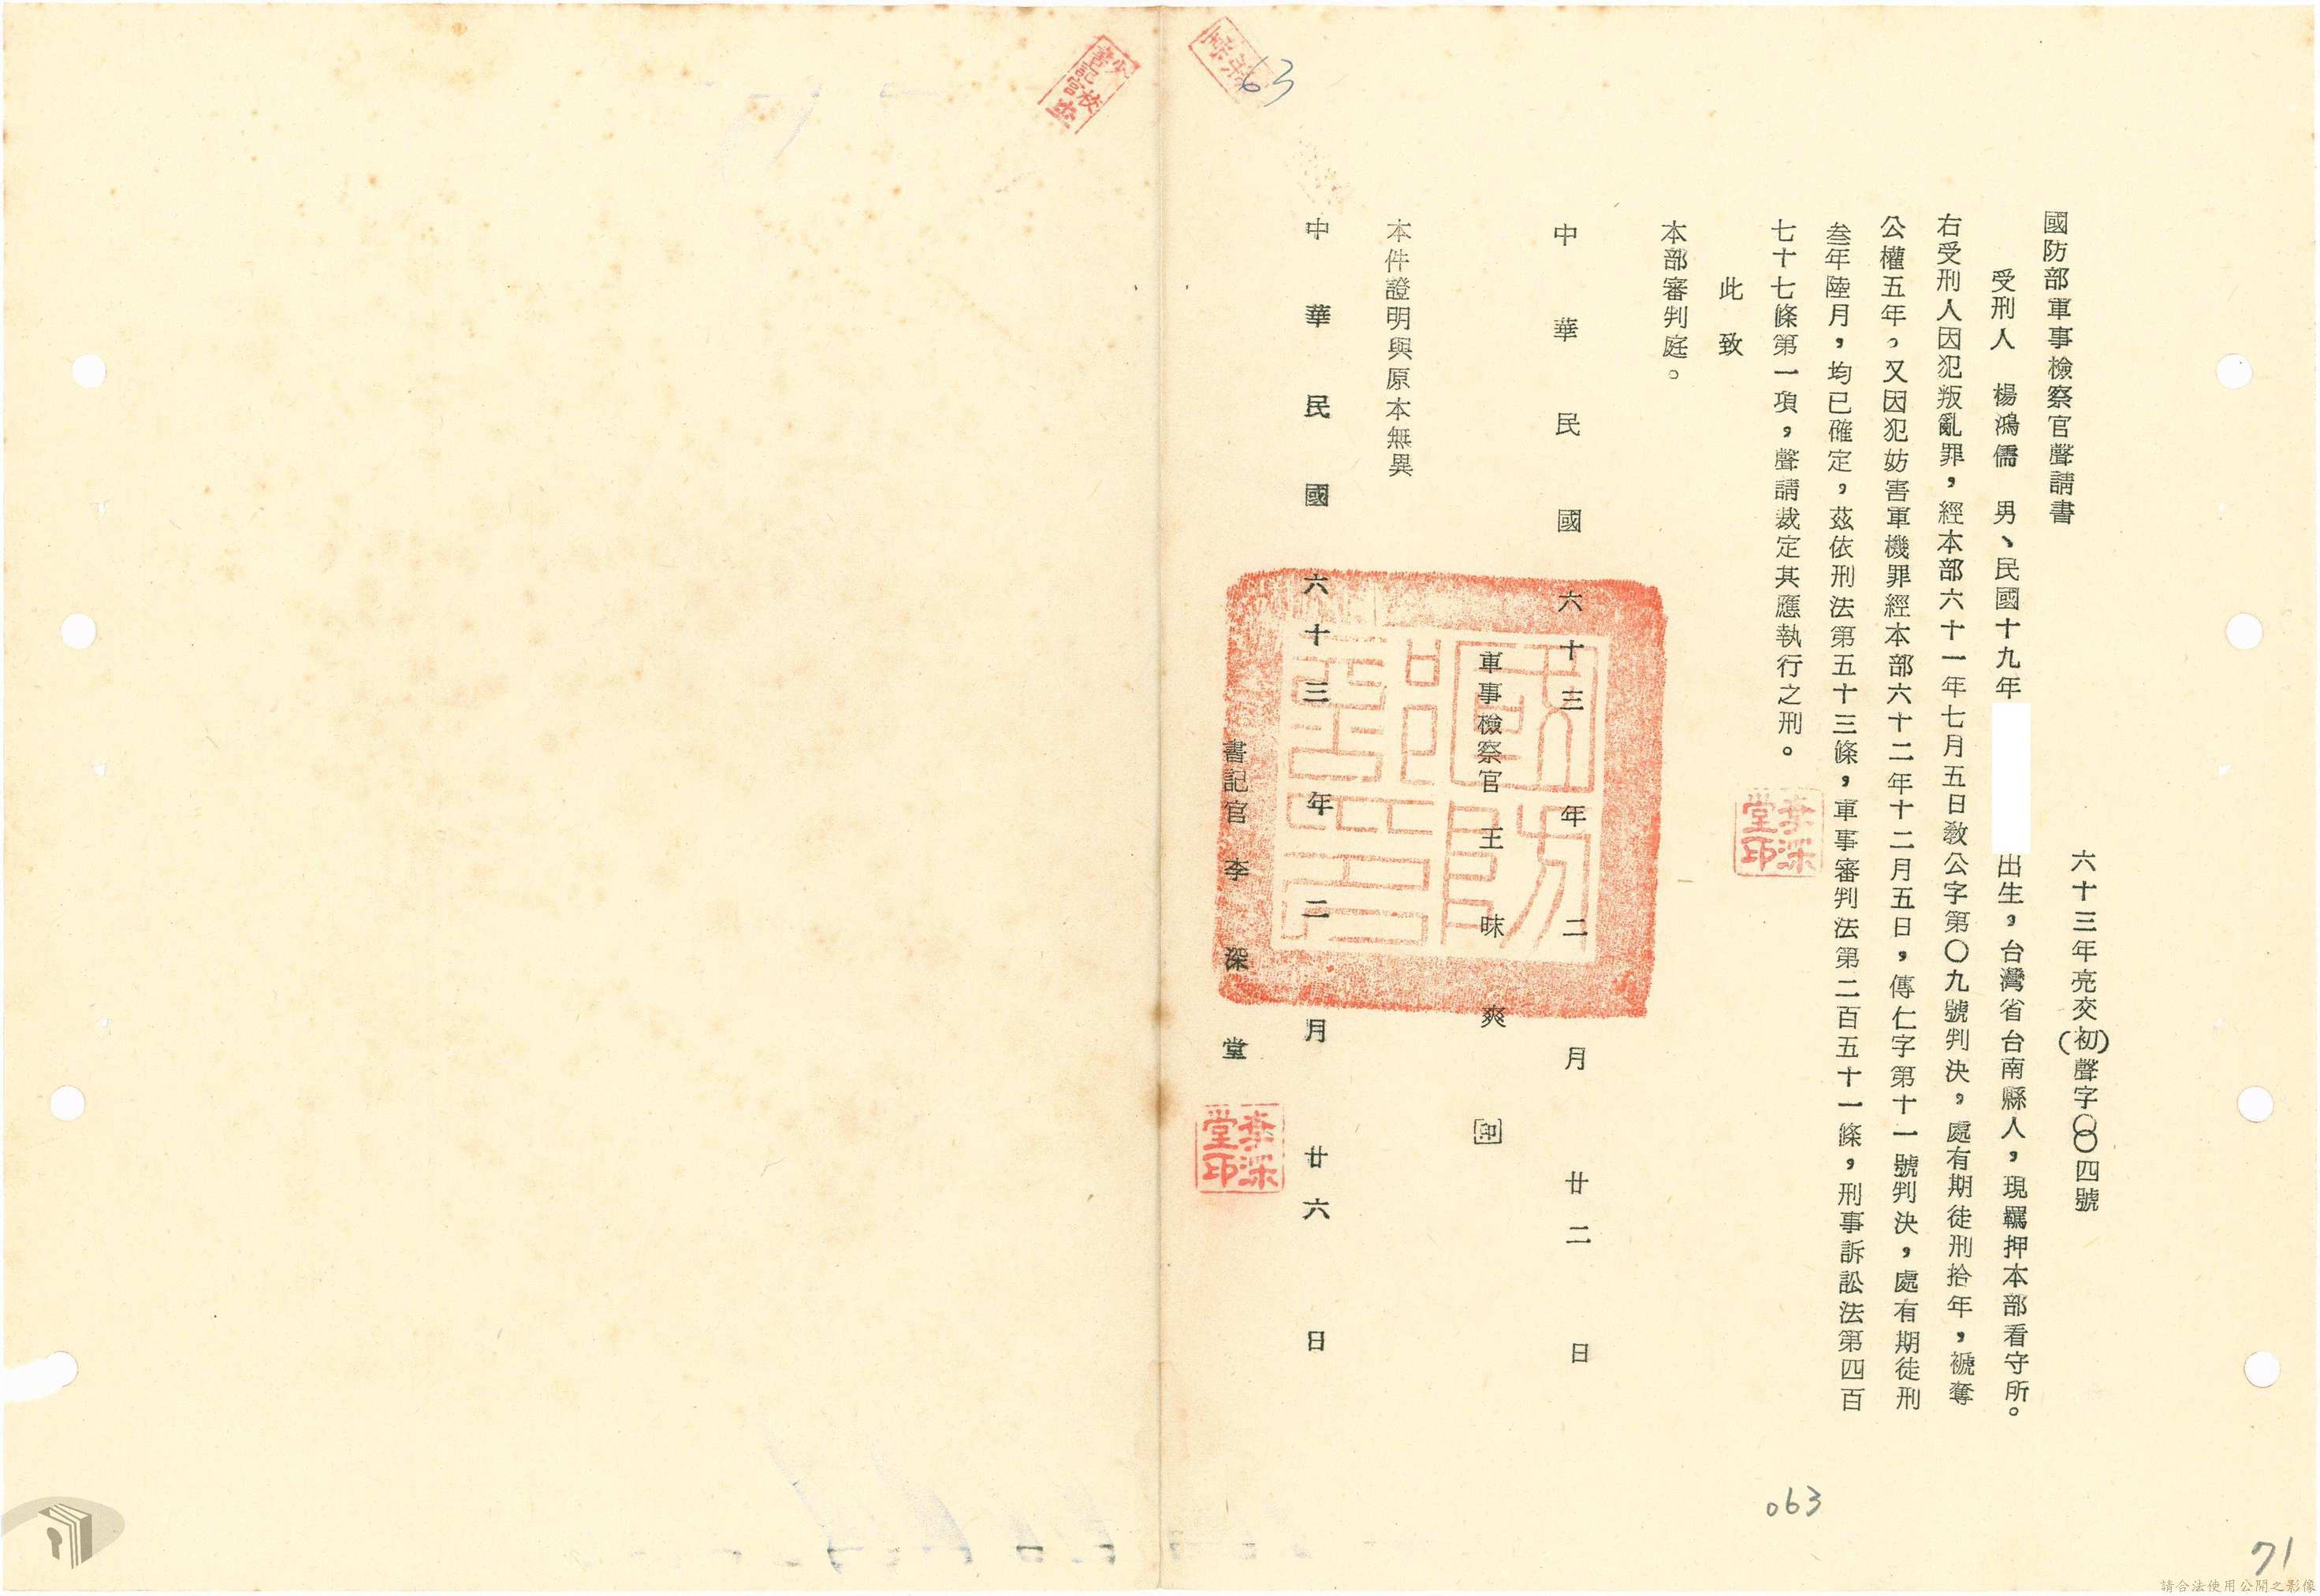 國防部軍事檢察官聲請書
六十三年亮夾(初)聲字〇〇四號
受刑人 楊鴻儒 男、民國十九年 出生,台灣省台南縣人,現羈押本部看守所。
右受刑人因犯叛亂罪,經本部六十一年七月五日教公字第〇九號判決,處有期徒刑拾年,褫奪
公權五年。又因犯妨害軍機罪經本部六十二年十二月五日,傳仁字第十一號判決,處有期徒刑
叁年陸月,均已確定,茲依刑法第五十三條,軍事審判法第二百五十一條,刑事訴訟法第四百
七十七條第一項,聲請裁定其應執行之刑。
此致
本部審判庭。
中華民國六十三年二月廿二日
軍事檢察官 王昧爽 印
本件證明與原本無異
中華民國六十三年二月廿六日
書記官 李深堂
李深堂印
李深堂印
國防部印
63
063
71
請合法使用公開之影像